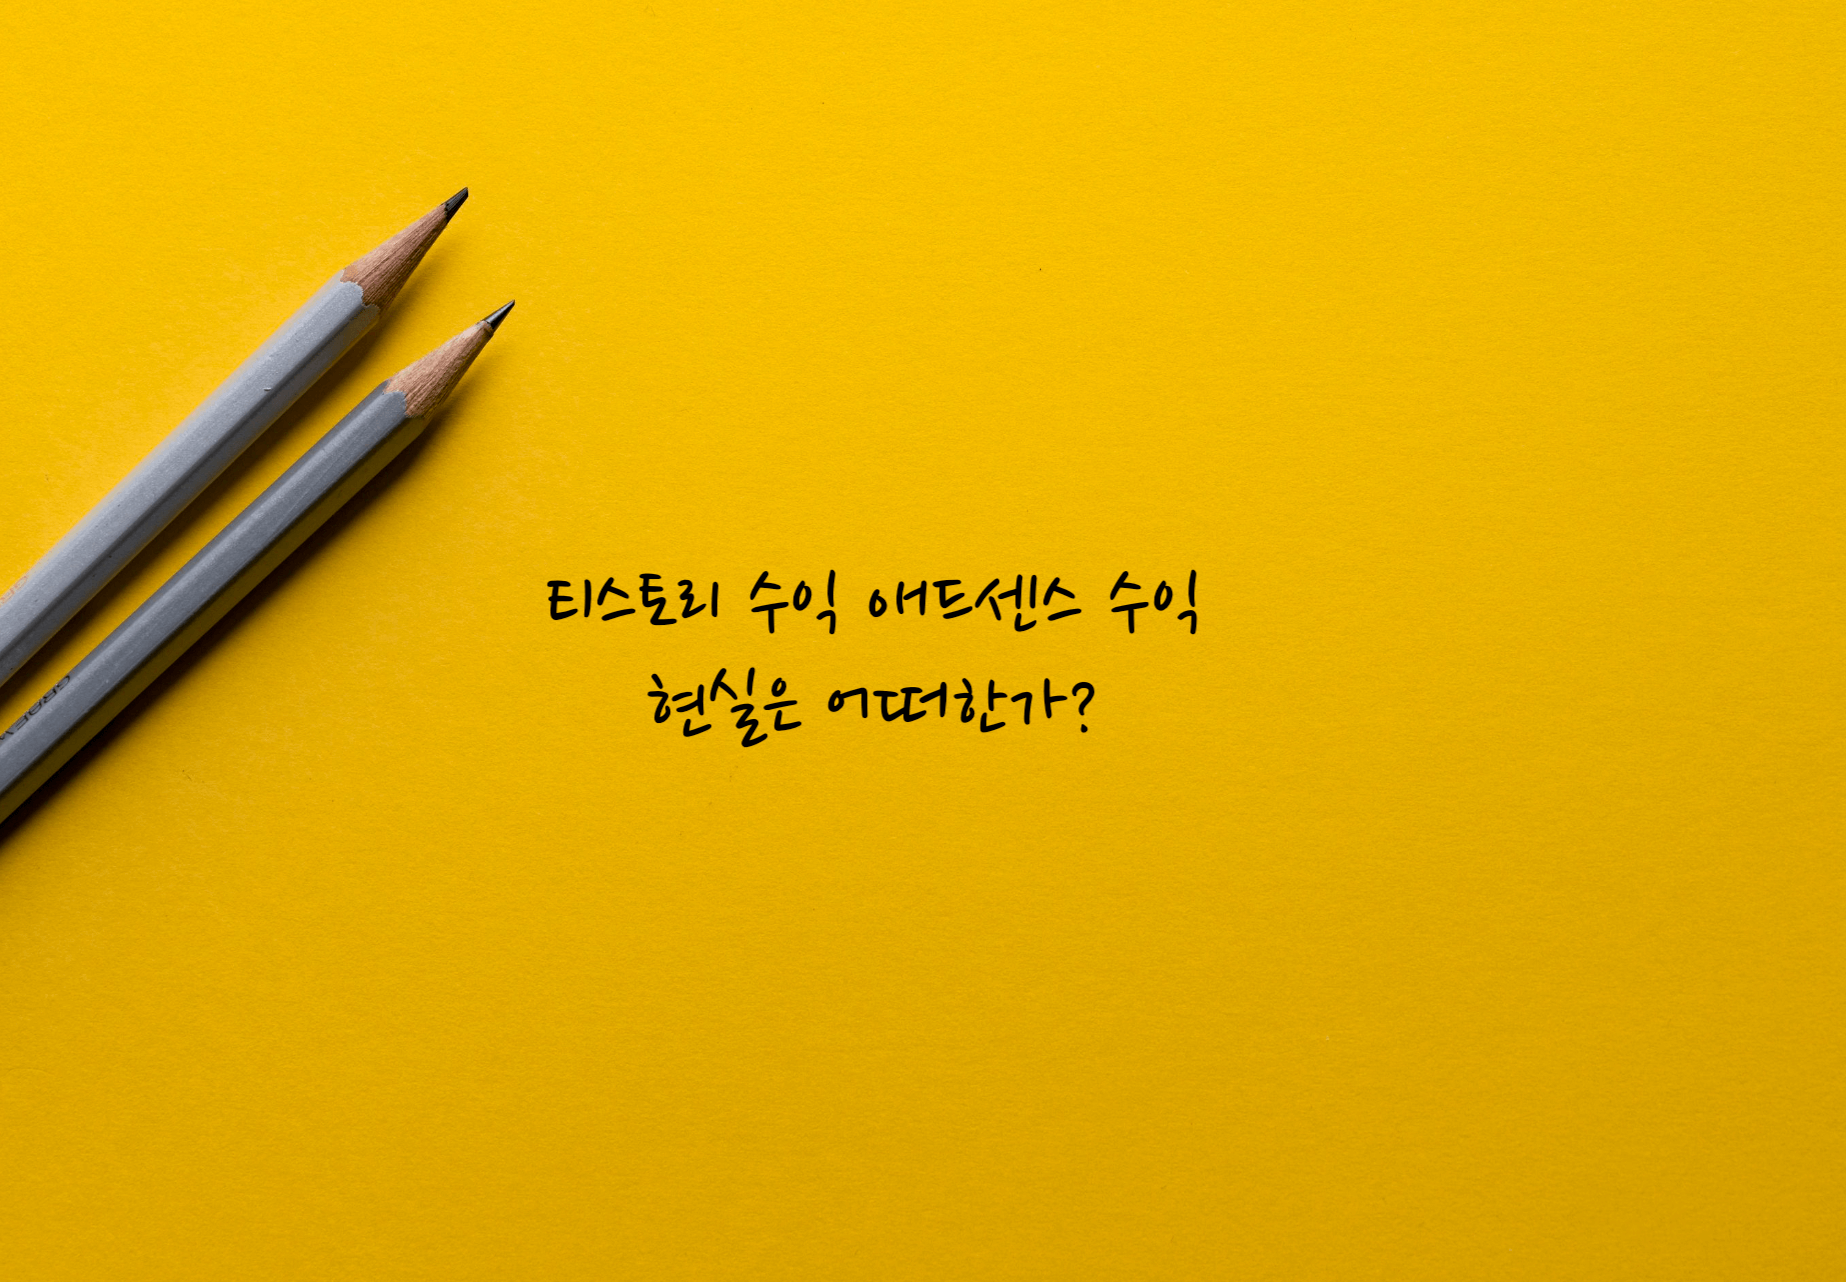 티스토리 수익 애드센스 수익
현실은 어떠한가?